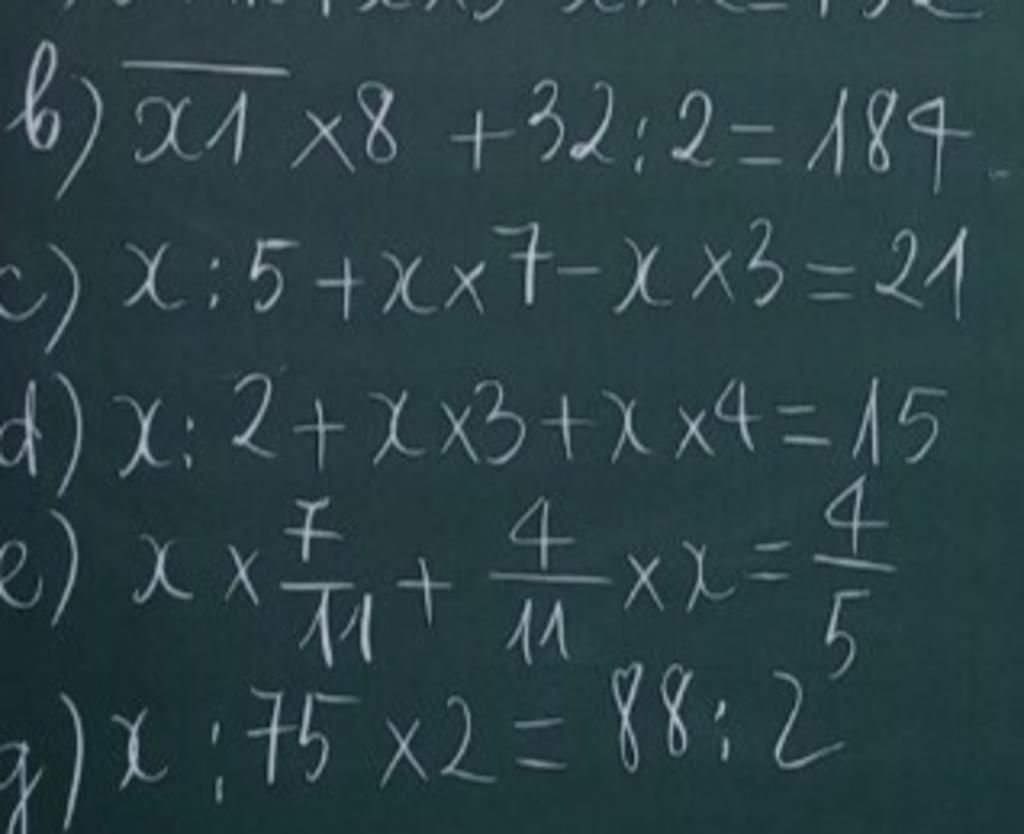 b) x̅1̅ × 8 + 32 : 2 = 184
c) x : 5 + x × 7 - x × 3 = 21
d) x : 2 + x × 3 + x × 4 = 15
e) x × 7/11 + 4/11 × x = 4/5
g) x : 75 × 2 = 88 : 2